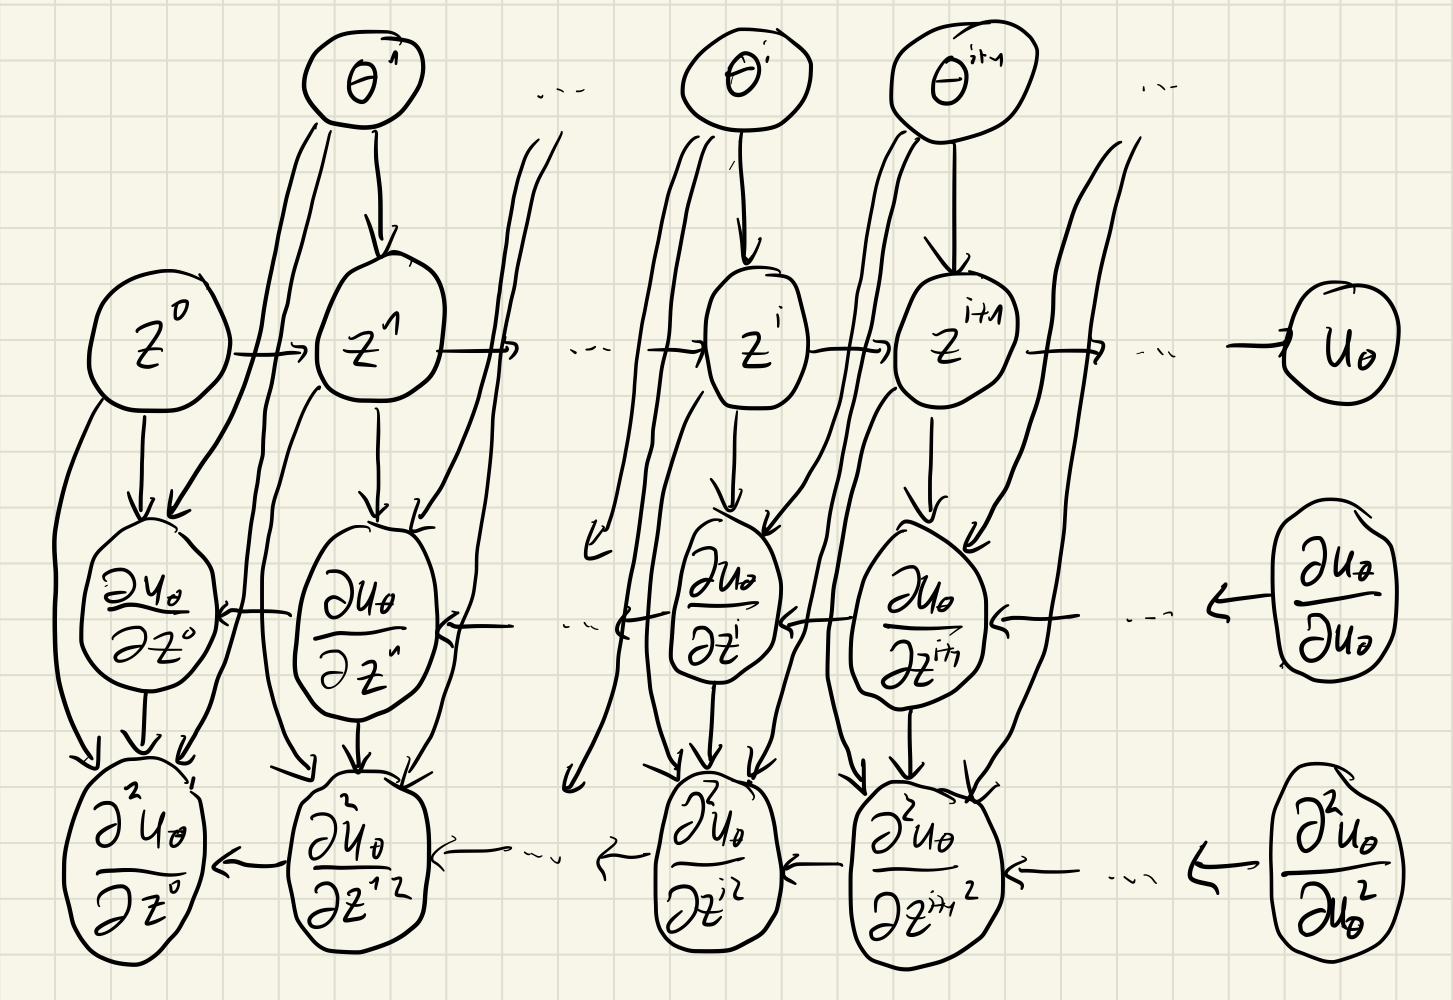 θ¹ ... θⁱ θⁱ⁺¹ ...
z⁰ z¹ ... zⁱ zⁱ⁺¹ ... u_θ
∂u_θ/∂z⁰ ∂u_θ/∂z¹ ... ∂u_θ/∂zⁱ ∂u_θ/∂zⁱ⁺¹ ... ∂u_θ/∂u_θ
∂²u_θ/∂z⁰ ∂²u_θ/∂z¹² ... ∂²u_θ/∂zⁱ² ∂²u_θ/∂zⁱ⁺¹² ... ∂²u_θ/∂u_θ²